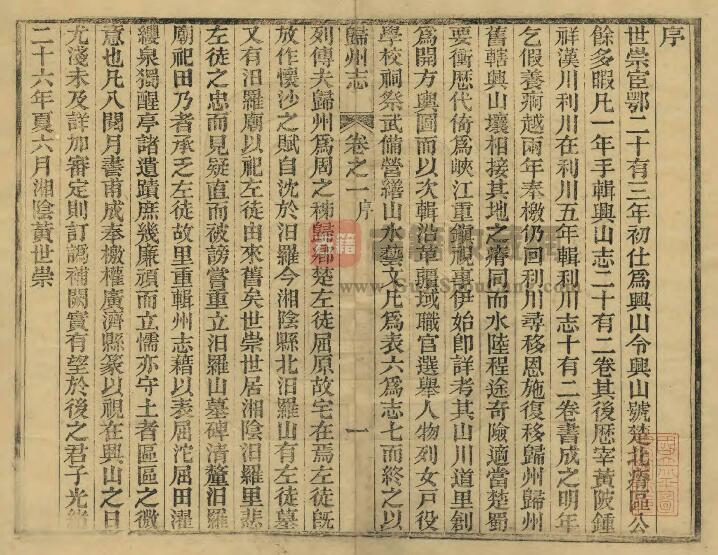 序
世崇宦鄂二十有三年初仕爲興山令興山號楚北瘠區公
餘多暇凡一年手輯興山志二十有二卷其後歷宰黃陂鍾
祥漢川利川在利川五年輯利川志十有二卷書成之明年
乞假養痾越兩年奉檄仍回利川尋移恩施復移歸州歸州
舊轄興山壤相接其地之瘠同而水陸程途奇險適當楚蜀
要衝歷代倚爲峽江重鎭視事伊始卽詳考其山川道里剏
爲開方輿圖而以次輯沿革疆域職官選舉人物列女戸役
學校祠祭武備營繕山水藝文凡爲表六爲志七而終之以
歸州志
卷之一序
一
列傳夫歸州爲周之秭歸鄉楚左徒屈原故宅在焉左徒旣
放作懷沙之賦自沈於汨羅今湘陰縣北汨羅山有左徒墓
又有汨羅廟以祀左徒由來舊矣世崇世居湘陰汨羅里悲
左徒之忠而見疑直而被謗嘗重立汨羅山墓碑清釐汨羅
廟祀田乃者承乏左徒故里重輯州志藉以表屈沱屈田濯
纓泉獨醒亭諸遺蹟庶幾廉頑而立懦亦守土者區區之微
意也凡八閱月書甫成奉檄權廣濟縣篆以視在興山之日
尤淺未及詳加審定則訂譌補闕實有望於後之君子光緒
二十六年夏六月湘陰黃世崇